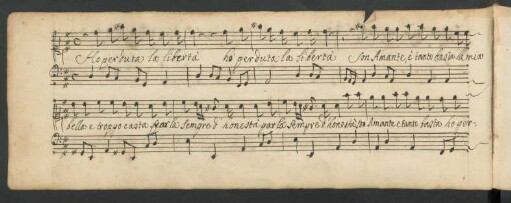 Ho perduta la libertà ho perduta la libertà son Amante, e tanto basta la mia
bella e troppo casta parla sempre d' honestà parla sempre d' honestà son Amante e tanto basta ho per-